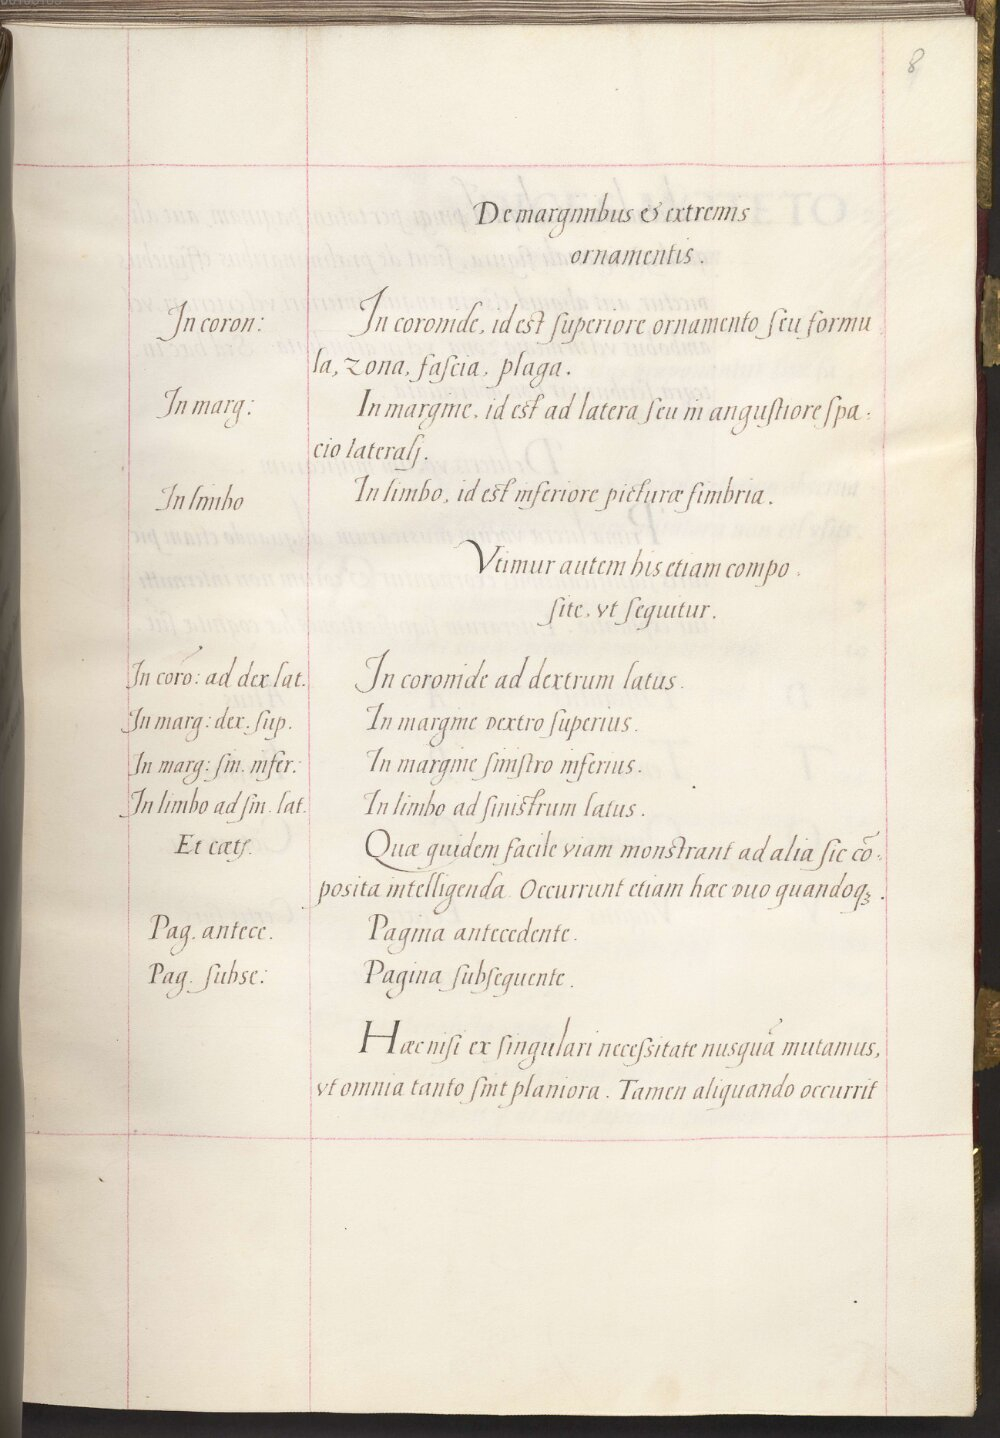 8
De marginibus & extremis
ornamentis.
In coron: In coronide, id est superiore ornamento seu formu
la, zona, fascia, plaga.
In marg: In margine, id est ad latera seu in angustiore spa-
cio laterali.
In limbo In limbo, id est inferiore picturæ fimbria.
Vtimur autem his etiam compo-
site, vt sequitur.
In corō: ad dex. lat. In coronide ad dextrum latus.
In marg: dex. sup. In margine dextro superius.
In marg: sin. infer: In margine sinistro inferius.
In limbo ad sin. lat. In limbo ad sinistrum latus.
Et cæt. Quæ quidem facile viam monstrant ad alia sic cō-
posita intelligenda. Occurrunt etiam hæc duo quandoqȝ.
Pag. antece. Pagina antecedente.
Pag. subse: Pagina subsequente.
Hæc nisi ex singulari necessitate nusquā mutamus,
vt omnia tanto sint planiora. Tamen aliquando occurrit